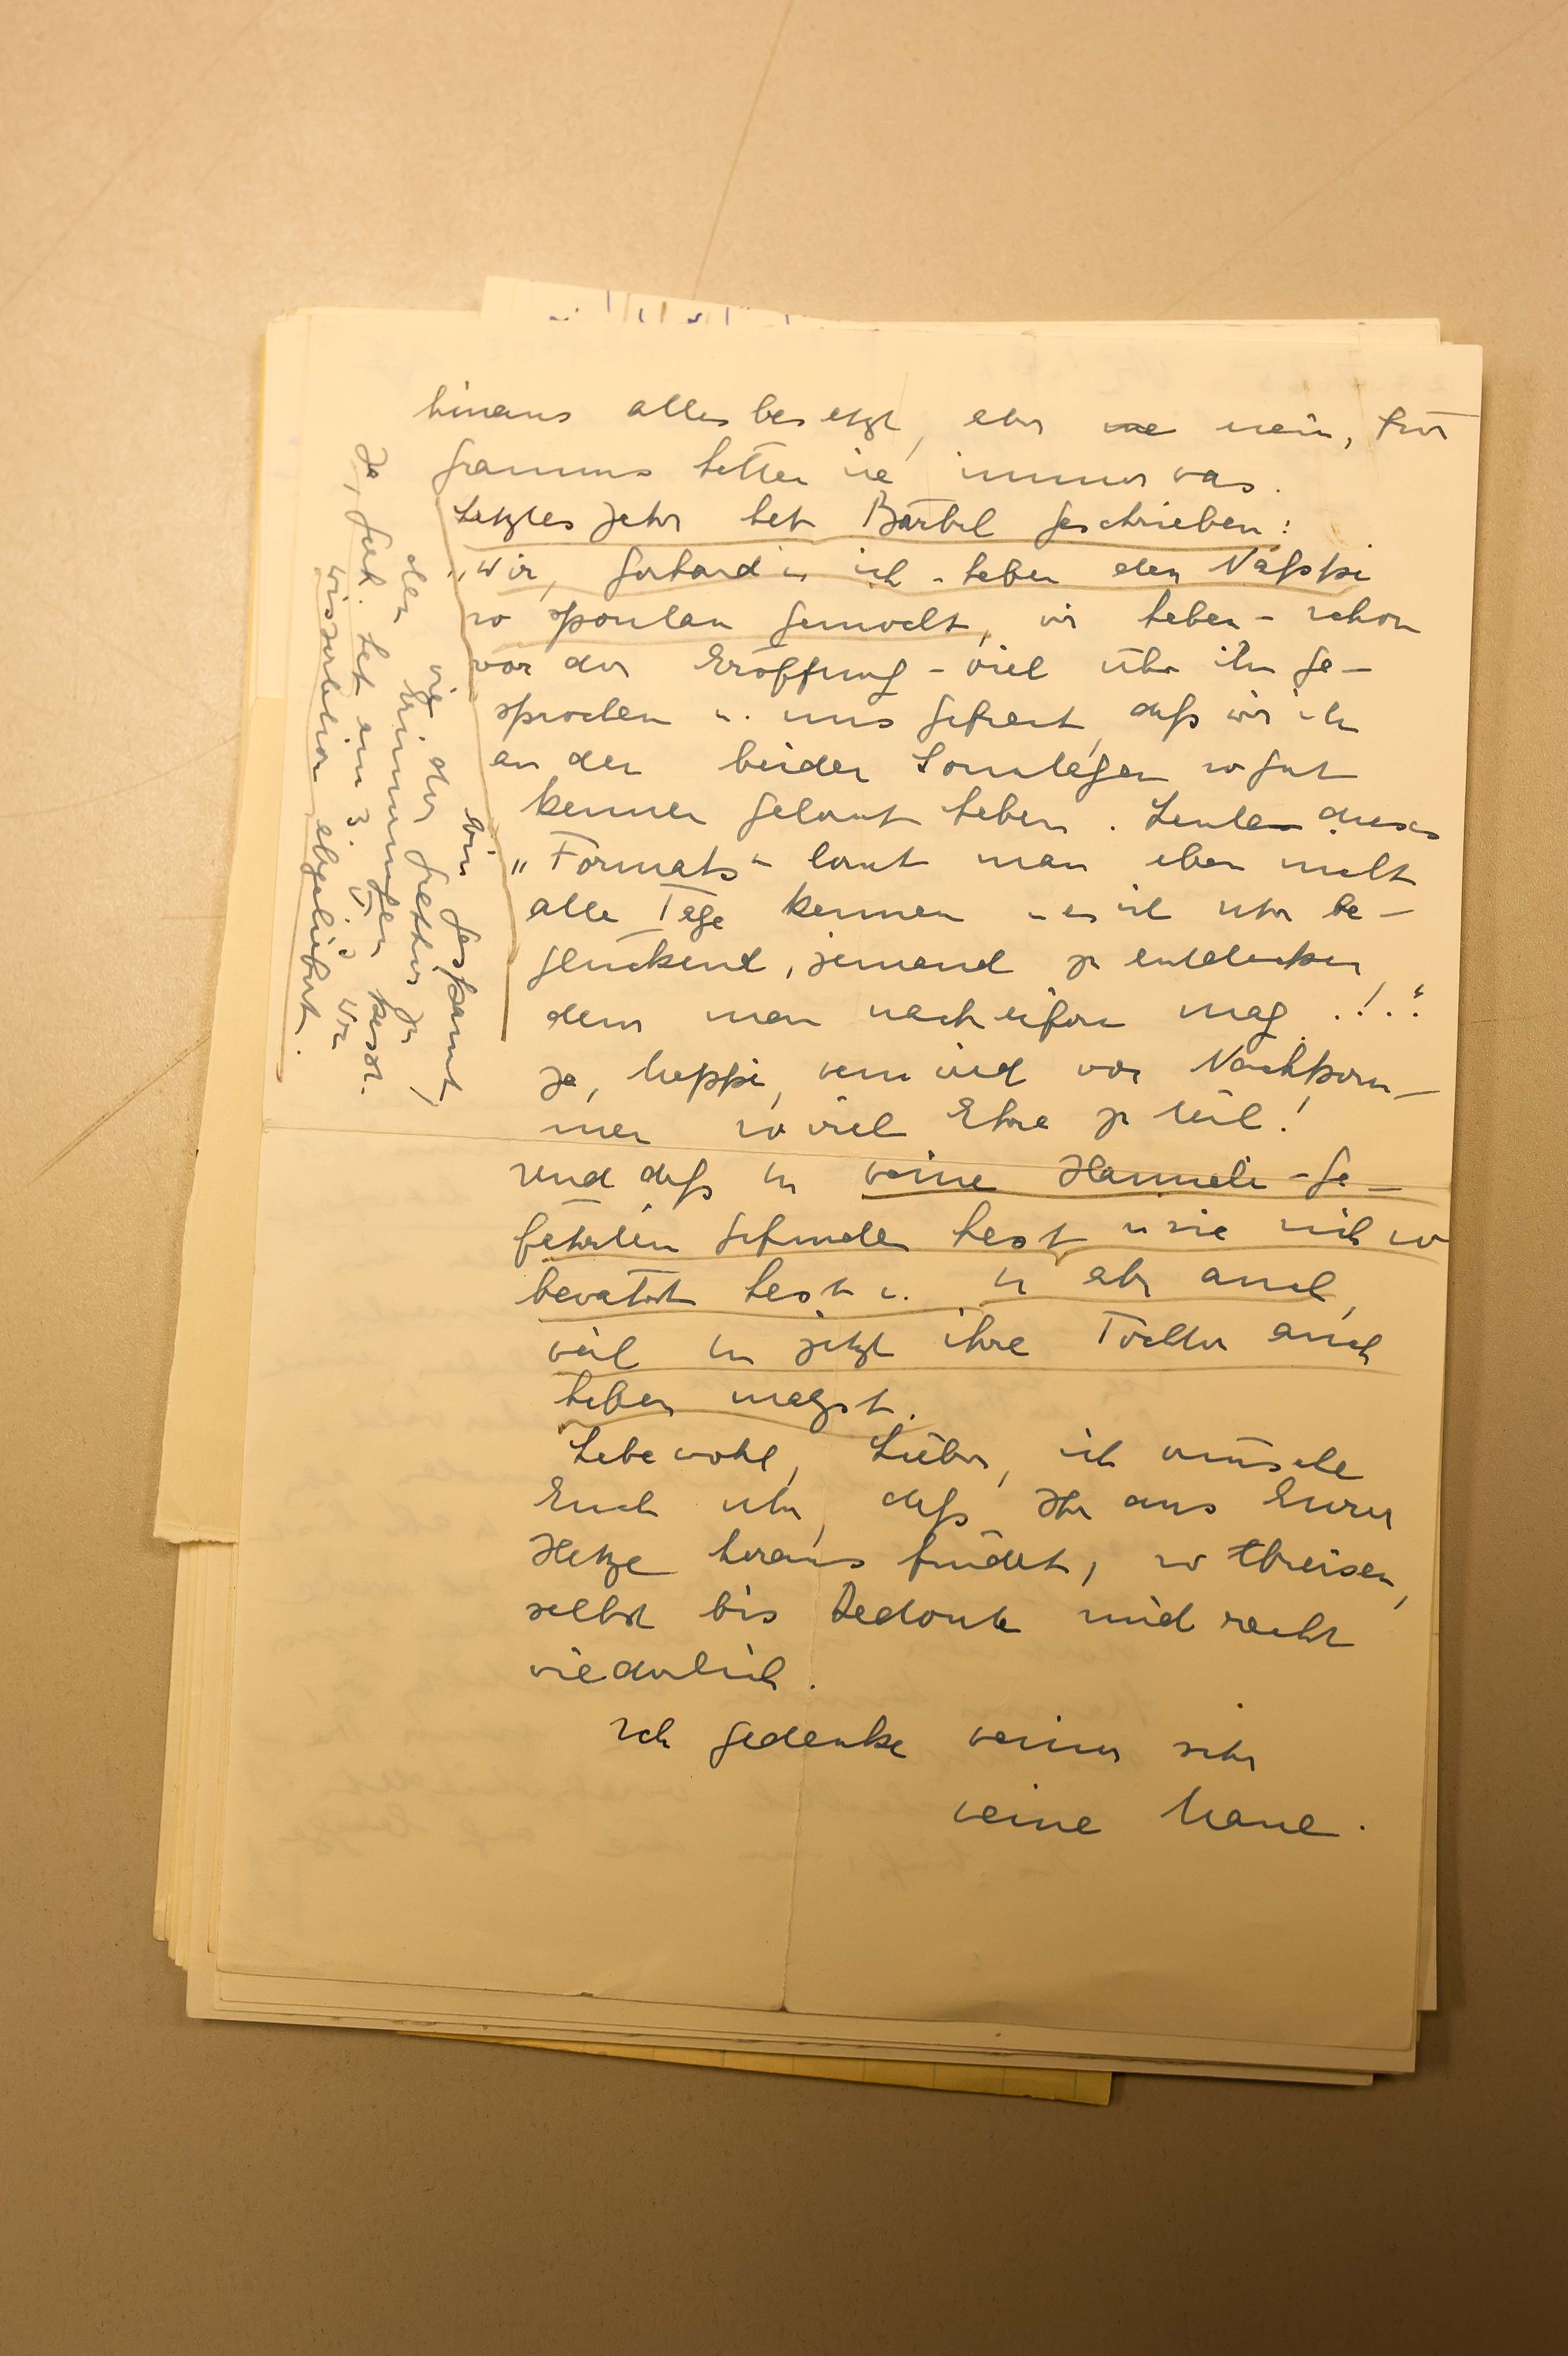 hinaus alles besetzt, aber nein, für
Gramms hätten sie immer was.
Letztes Jahr hat Bärbel geschrieben:
„Wir, Gerhard u. ich - haben den Näppi
so spontan gemocht, wir haben - schon
vor der Eröffnung - viel über ihn ge-
sprochen u. uns gefreut, daß wir ihn
an den beiden Sonntagen so gut
kennen gelernt haben. Leute dieses
„Formats“ lernt man eben nicht
alle Tage kennen u. es ist sehr be-
glückend, jemand zu entdecken,
dem man nacheifern mag.!."
Ja, wem wird von Nachkom-
men so viel Ehre zu teil!
Und daß Du Deine Hanneli-Ge-
fährtin gefunden hast u. sie sich so
bewährt hast u. Du aber auch,
weil Du jetzt ihre Tochter auch
haben magst.
Lebe wohl, Lieber, ich wünsche
Euch sehr, daß Ihr aus Eurer
Hetze heraus findet,
selbst bis und recht
widerlich.
Ich gedenke Deiner sehr
Deine
Bin gespannt,
wie der Fretter zu
den Erinnerungen passt.
Ja, Gak. hat ein 3. Von
abgeliefert.